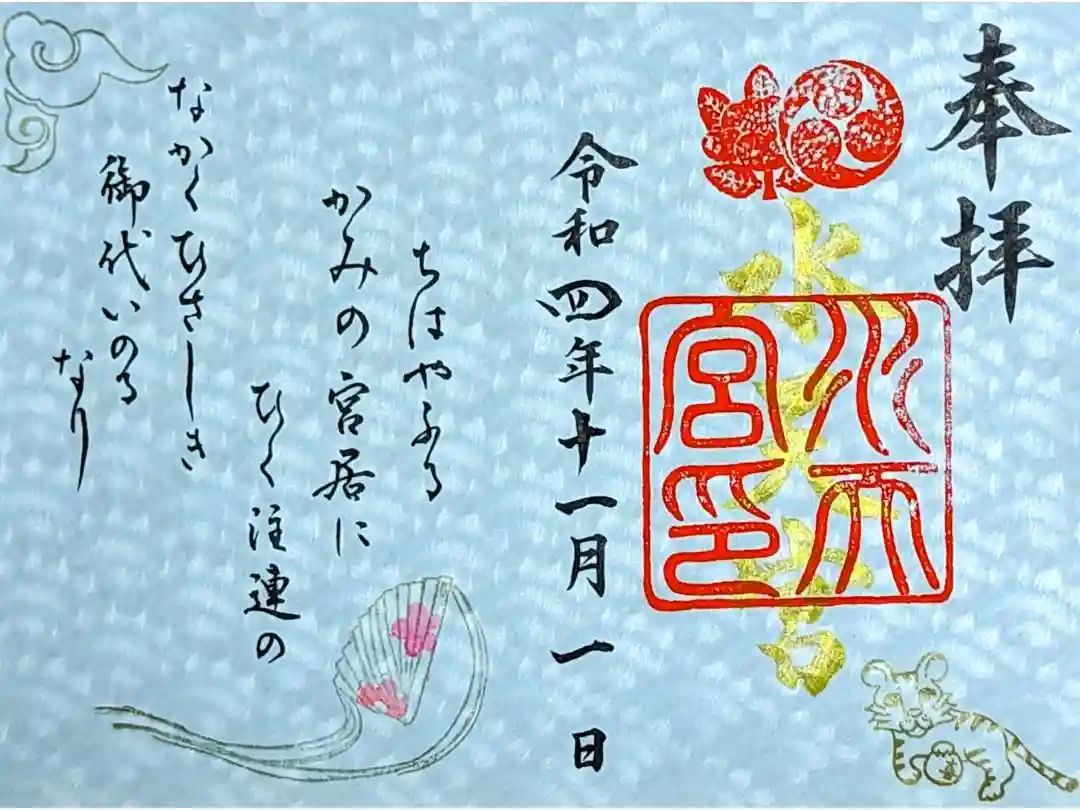 奉拝
水天宮
水天宮印
令和四年十一月一日
ちはやふる
かみの宮居に
ひく注連の
なかくひさしき
御代いのる
なり